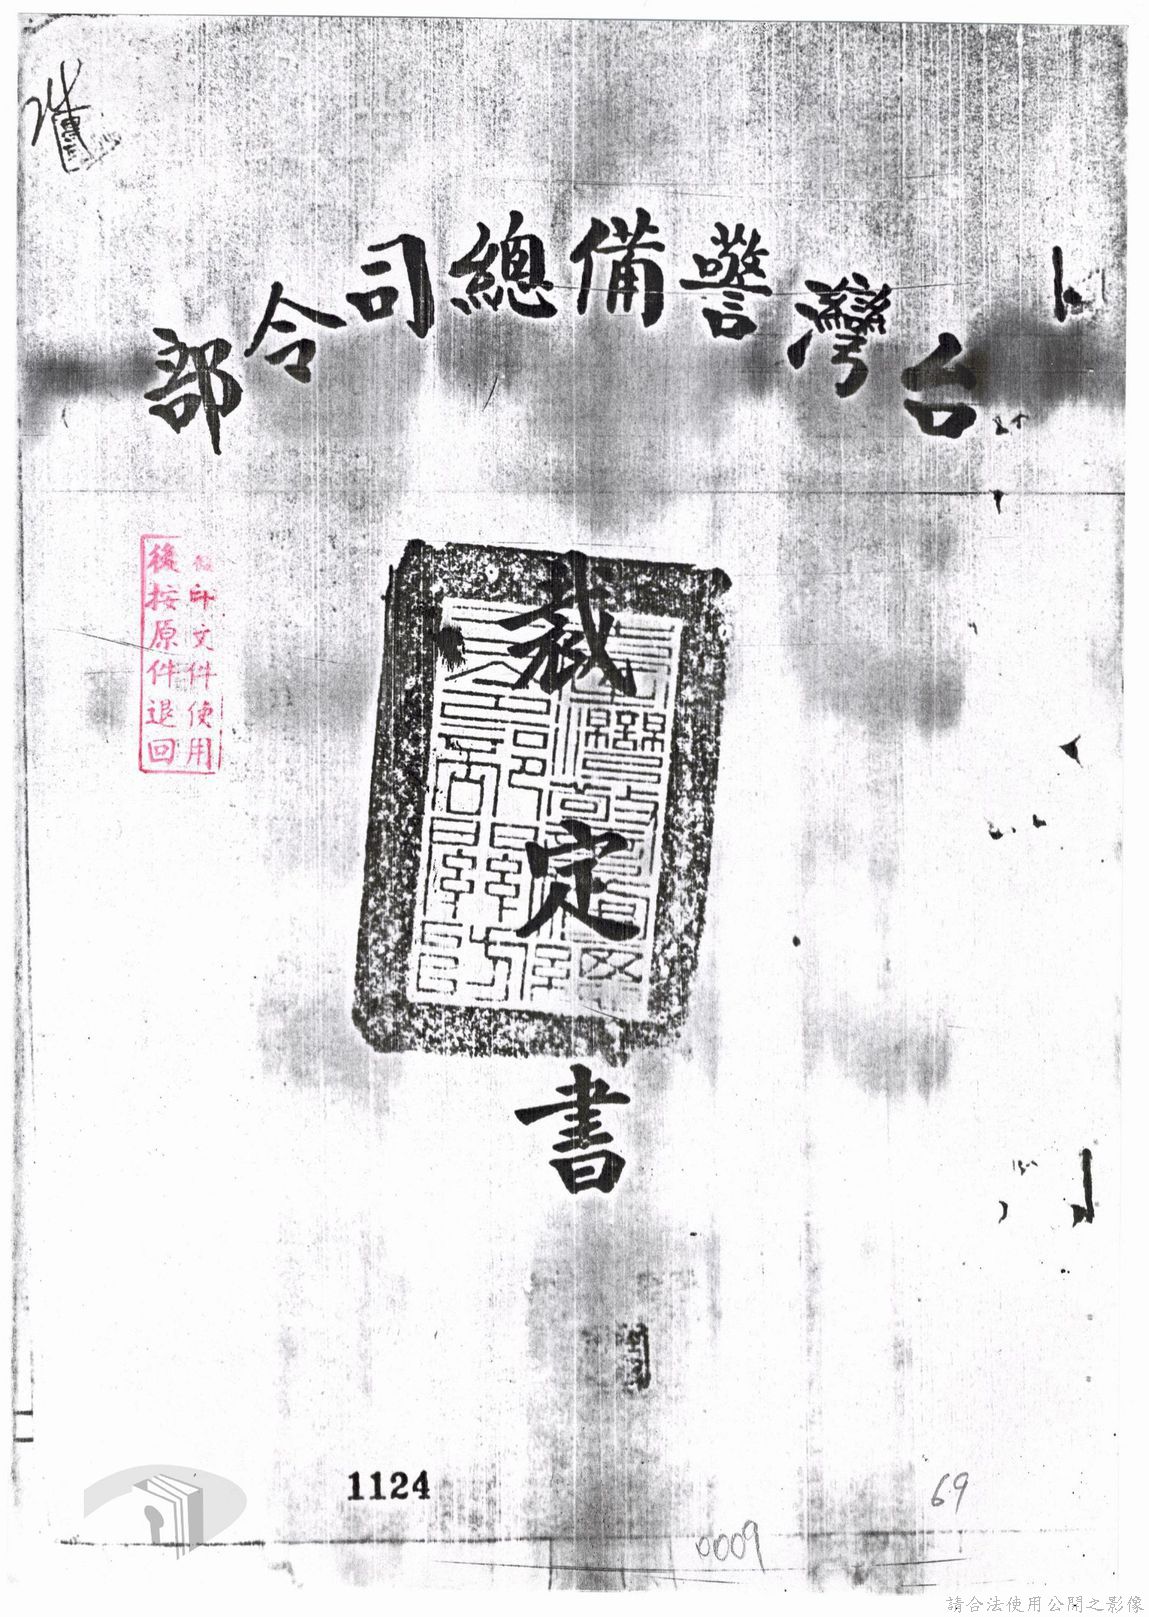 台灣警備總司令部
裁定書
影印文件使用
後按原件退回
1124
69
0009
請合法使用公開之影像